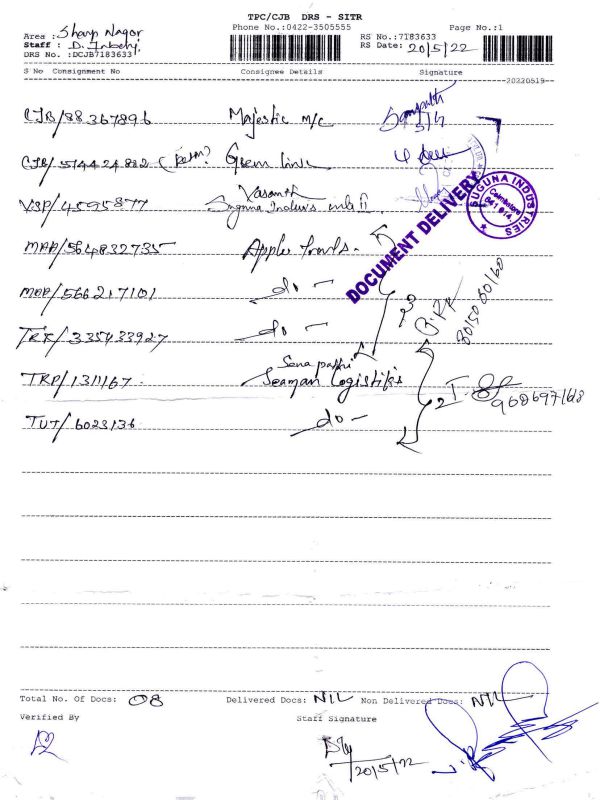 TPC/CJB DRS - SITR
Phone No.:0422-3505555
Page No.:1
Area : Sharp Nagar
RS No.:7183633
Staff : D.
RS Date: 20/5/22
DRS No. :DCJB7183633
S No Consignment No Consignee Details Signature
20220519
CJB/88367896 Majestic m/c
CJB/574424882 Green line
Vasanth
VSP/4595877 Suguna Indus's
DOCUMENT DELIVERY
SUGUNA INDUSTRIES
Coimbatore
641 014
MAA/564832735 Apple Travels.
MAA/566217101 do -
TRK/335433927 do -
3
80150 80160
Senapathi
TRP/1311167 Seaman logistiks
2
TUT/6023136 do -
Total No. Of Docs: 08 Delivered Docs: NIL Non Delivered Docs: NIL
Verified By Staff Signature
20/5/22